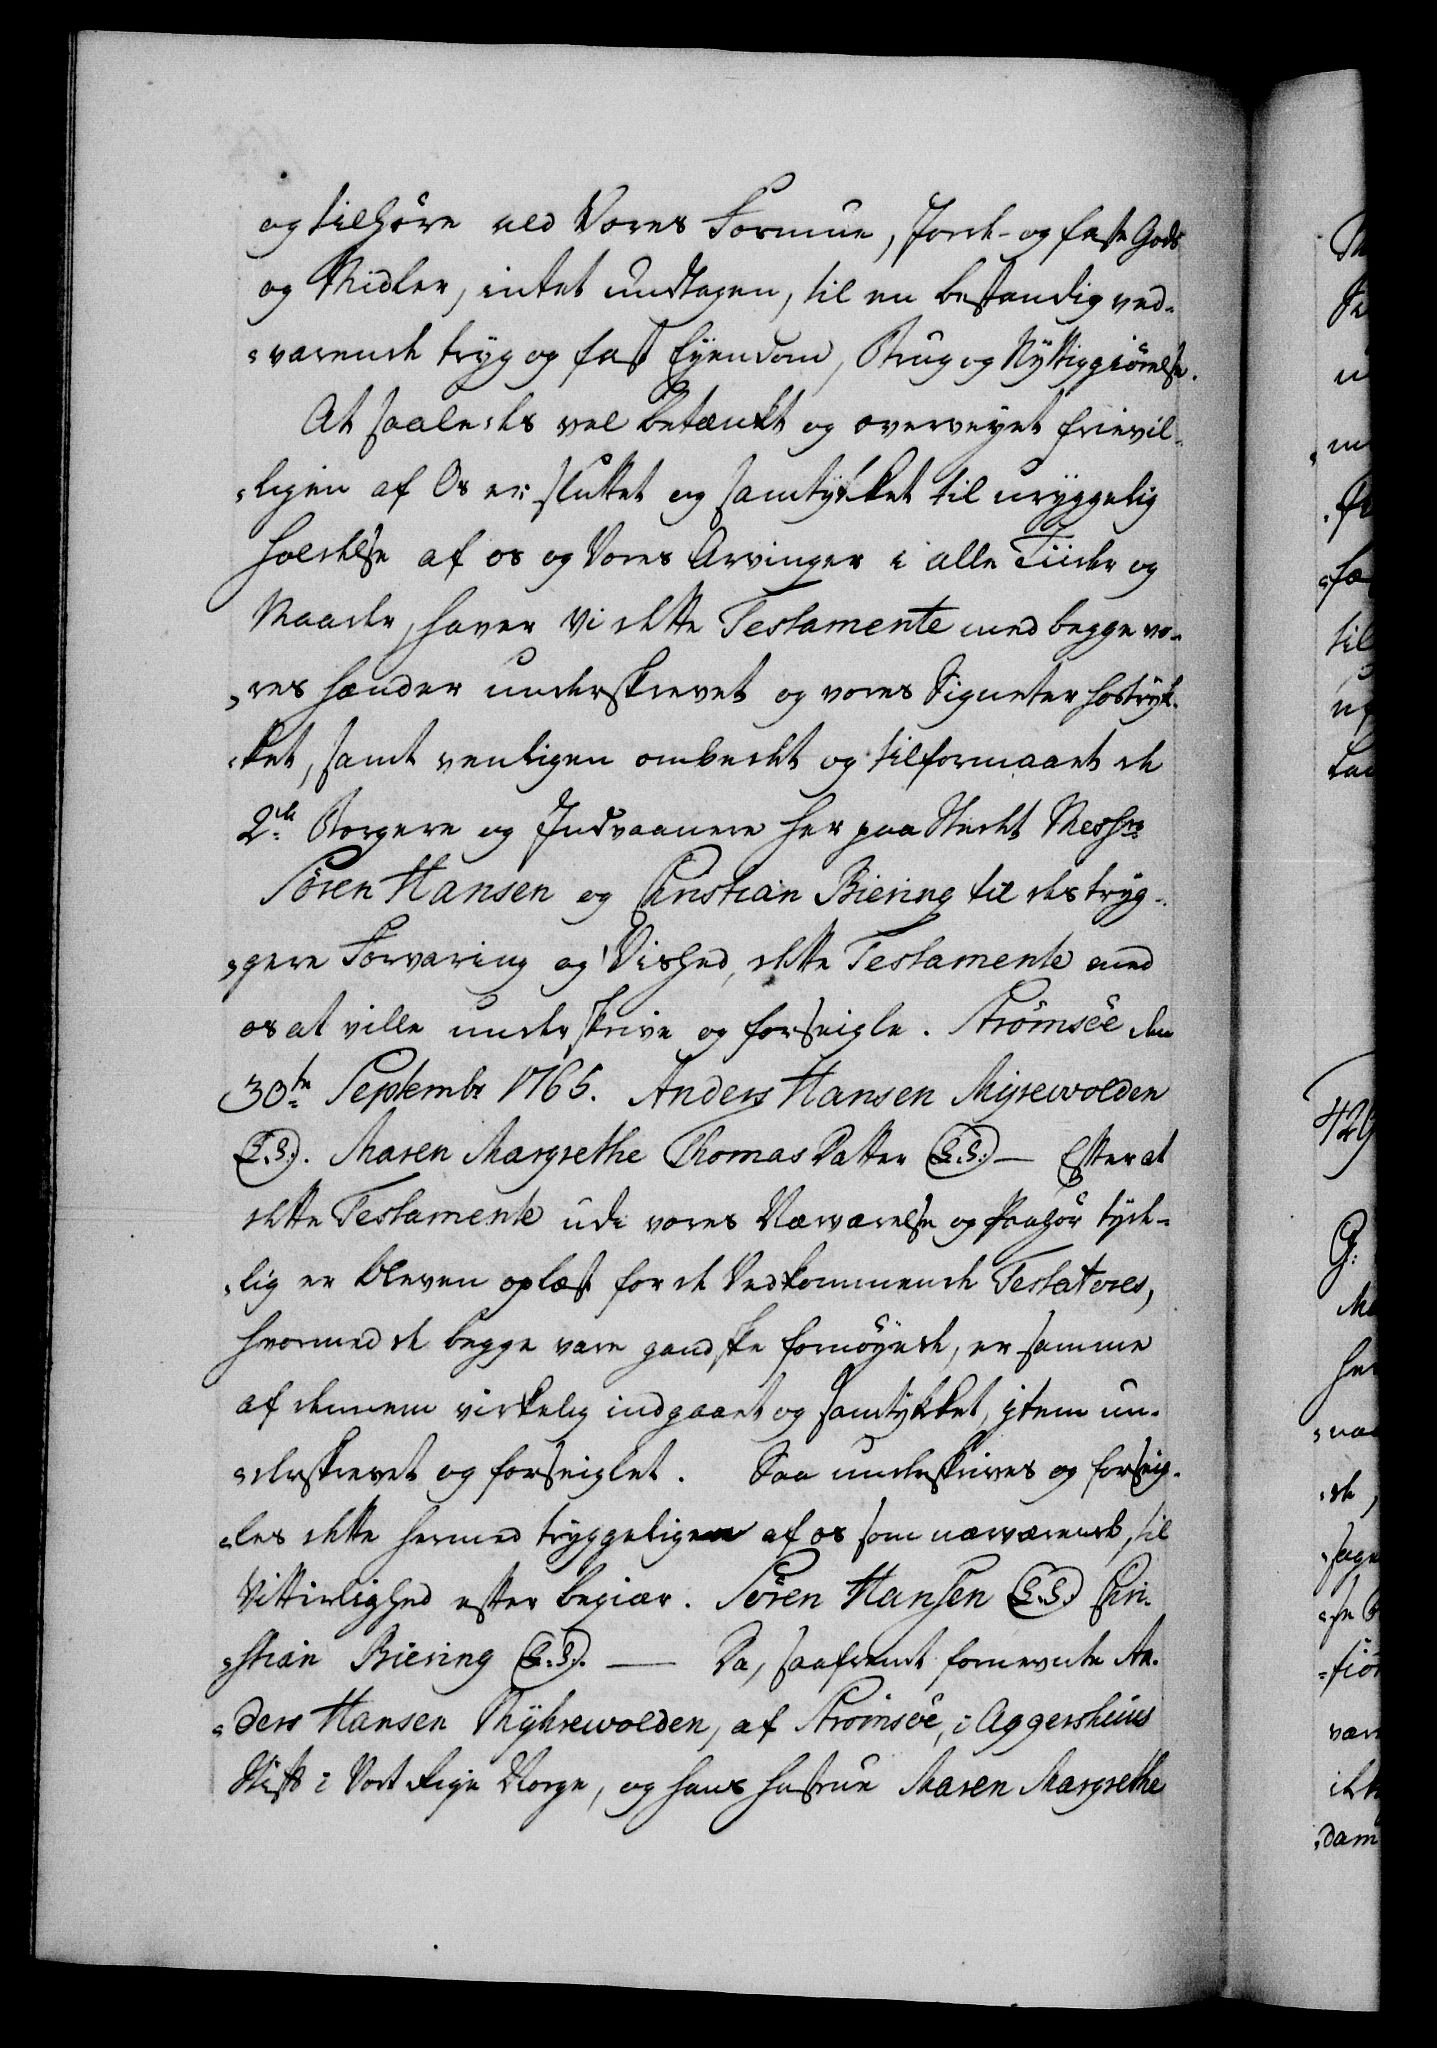 og tilhöre all Vores Formue, Jord- og faste Gods
og Midler, intet undtagen, til en bestandig ved-
varende tryg og fast Eyendom, Brug og Nyttiggiörelse.
At saaledes vel betænkt og overveyet frievil-
ligen af Os er sluttet og samtykket til uryggelig
holdelse af os og Vores Arvinger i alle Tiider og
Maader, haver Vi dette Testamente med begge vo-
res hænder underskrevet og vores Signeter hostryk-
ket, samt venligen ombedet og tilformaaet de
2de Borgere og Indvaanere her paa Stedet Messrs
Sören Hansen og Christian Biering til des tryg-
gere Forvaring og Vished, dette Testamente med
os at ville underskrive og forseigle. Strömsöe den
30te Septembr 1765. Anders Hansen Myrewolden
(L.S.). Maren Margrethe Thomas Datter (L.S.) — Efter at
dette Testamente udi vores Nærværelse og Paahör tyde-
lig er bleven oplæst for de Vedkommende Testatores,
hvormed de begge vare gandske fornöyede, er samme
af dennem virkelig indgaaet og samtykket, item un-
derskrevet og forseiglet. Saa underskrives og forseig-
les dette hermed tryggeligen af os som nærværende, til
Vitterlighed efter begiær. Sören Hansen (L.S.) Chri-
stian Biering (L.S.). — Da, saafremt fornevnte An-
ders Hansen Myhrewolden, af Strömsöe, i Aggershuus
Stift i Vort Rige Norge, og hans hustrue Maren Margrethe